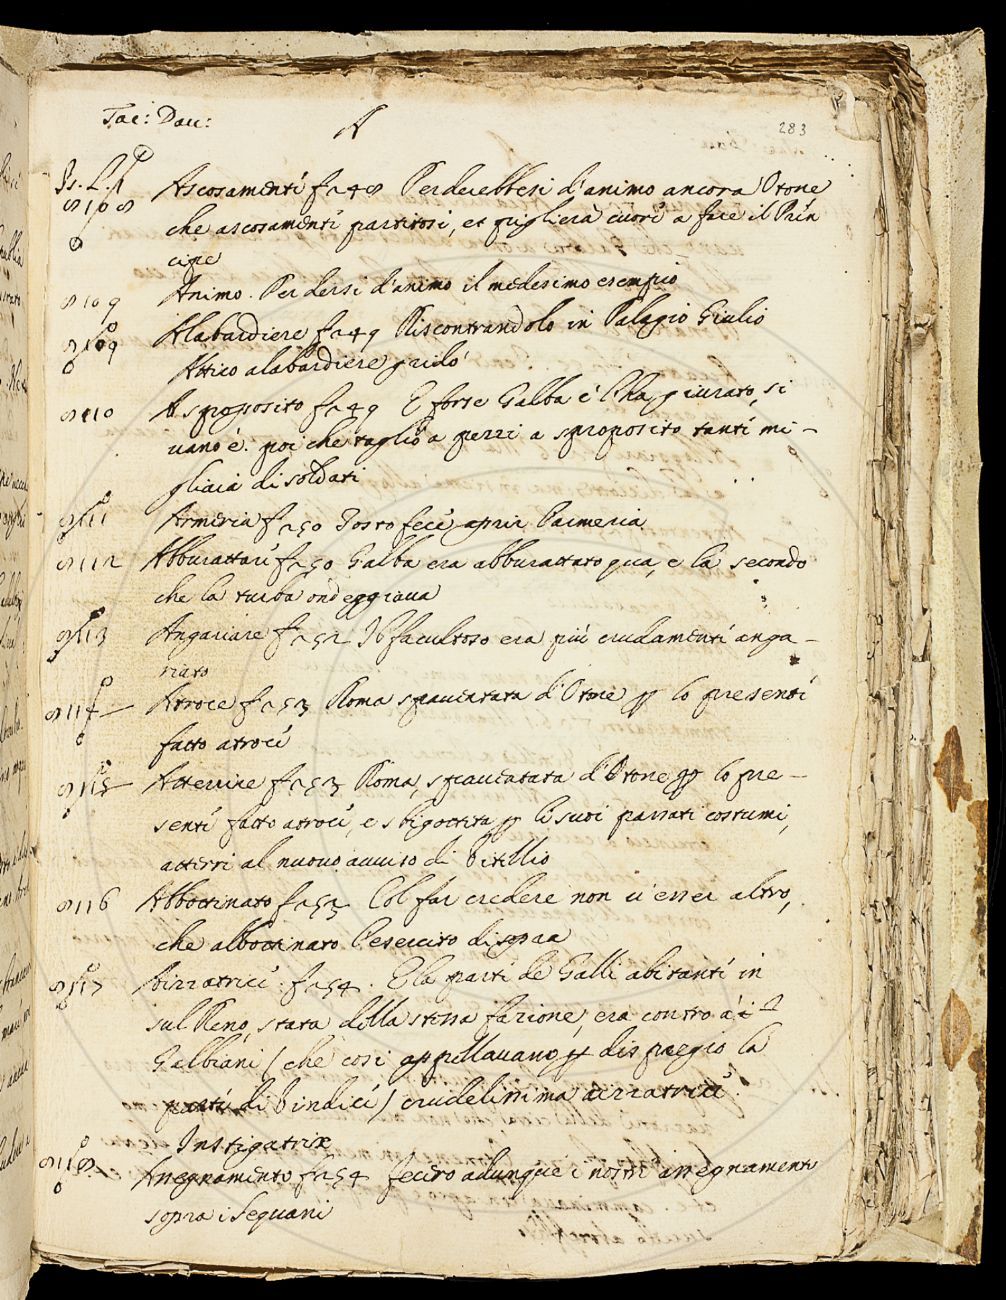 Tac: Dau:
A
283
Is. L. 1
Ascosamenti f 248 Perderebbesi d'animo ancora Otone
8108
che ascosamenti partitosi, et piglierà cuori a fare il Prin
cipe
8109 Animo. Perdersi d'animo il medesimo esempio
8109 Alabardiere f 249 Riscontrandolo in Palagio Giulio
Attico alabardiere gridò
8110 A sproposito f 249 E forse Galba è l'ha giurato, si
uano è. poi che tagliò a pezzi a sproposito tanti mi-
gliaia di soldati
8111 Armeria f 250 Tosto fece aprir l'armeria
8112 Abburattari f 250 Galba era abburattato qua, e là secondo
che la turba ondeggiaua
8113 Angariare f 252 Il facultoso era più crudamenti anga-
riato
8114 Atroce f 253 Roma spauentata d'Otone p lo presenti
fatto atroci
8115 Atterrire f 253 Roma, spauentata d'Otone p lo pre-
senti fatto atroci, e sbigottita p li suoi passati costumi,
atterrì al nuouo auuiso di Vitellio
8116 Abbottinato f 253 Col far credere non u'esser altro,
che abbottinato l'esercito di sopra
8117 Aizzatrici f 254. E la parti de Galli abitanti in
sul Reno, stata della stessa fazione, era contro a i
Galbiani / che così appellauano p dispregio la
parti di Vindici / crudelissima aizzatrici
Instigatrix
8118. Assegnamento f 254 fecero adunque i nostri assegnamenti
sopra i Sequani